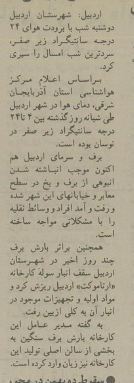 اردبیل: شهرستان اردبیل
دوشنبه شب با برودت هوای ۲۴
درجه سانتیگراد زیر صفر،
سردترین شب امسال را سپری
کرد.
براساس اعلام مرکز
هواشناسی استان آذربایجان
شرقی، دمای هوا در شهر اردبیل
طی شبانه روز گذشته بین ۲ تا ۲۴
درجه سانتیگراد زیر صفر در
نوسان بوده است.
برف و سرمای اردبیل هم
اکنون موجب انباشته شدن
انبوهی از برف و یخ در سطح
معابر و خیابانهای این شهر شده
و رفت و آمد افراد و وسائط نقلیه
را با مشکلاتی مواجه ساخته
است.
همچنین براثر بارش برف
چند روز اخیر در شهرستان
اردبیل سقف انبار سوله کارخانه
«ارتاموکت» اردبیل ریزش کرد و
مواد اولیه و تجهیزات موجود در
انبار آن به کلی ازبین رفت.
به گفته مدیر عامل این
کارخانه بارش برف سنگین به
بخشی از سالن اصلی تولید این
کارخانه نیز زیان وارد کرده است.